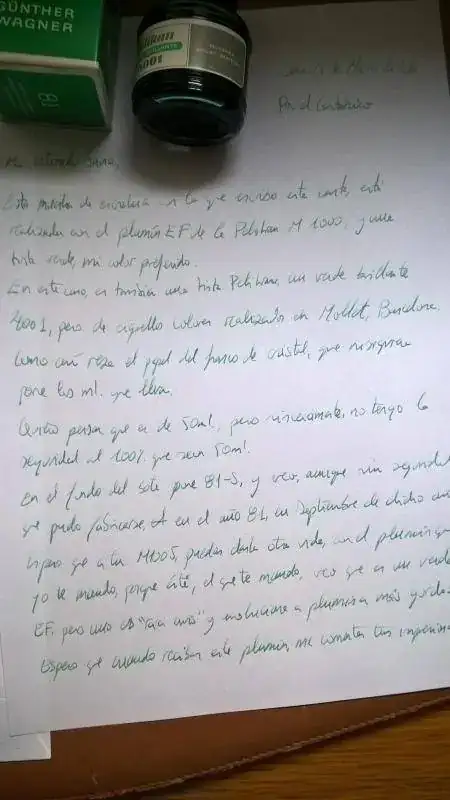 GÜNTHER
WAGNER
Pelikan
4001
81
Por el contrario
Mi estimado
Esta muestra de escritura en la que escribo esta carta, está
realizada con el plumín EF de la Pelikan M 1000, y una
tinta verde, mi color preferido.
En este caso, es también una tinta Pelikan, un verde brillante
4001, pero de aquellos colores realizados en Mollet, Barcelona.
Como así reza el papel del frasco de cristal, que
pone los ml. que lleva.
Quiero pensar que es de 50ml, pero sinceramente, no tengo la
seguridad al 100% que sean 50ml.
En el fondo del bote pone 81-5, y creo, aunque sin seguridad
que pudo fabricarse, en el año 81, en Septiembre de dicho año
Espero que a tu M1005, puedas darle otra vida, con el plumín que
yo te mando, porque éste, el que te mando, veo que es un verdad
EF, pero uno es "raca" y evoluciona a plumines más gordos
Espero que cuando recibas este plumín, me comentes tus impresiones